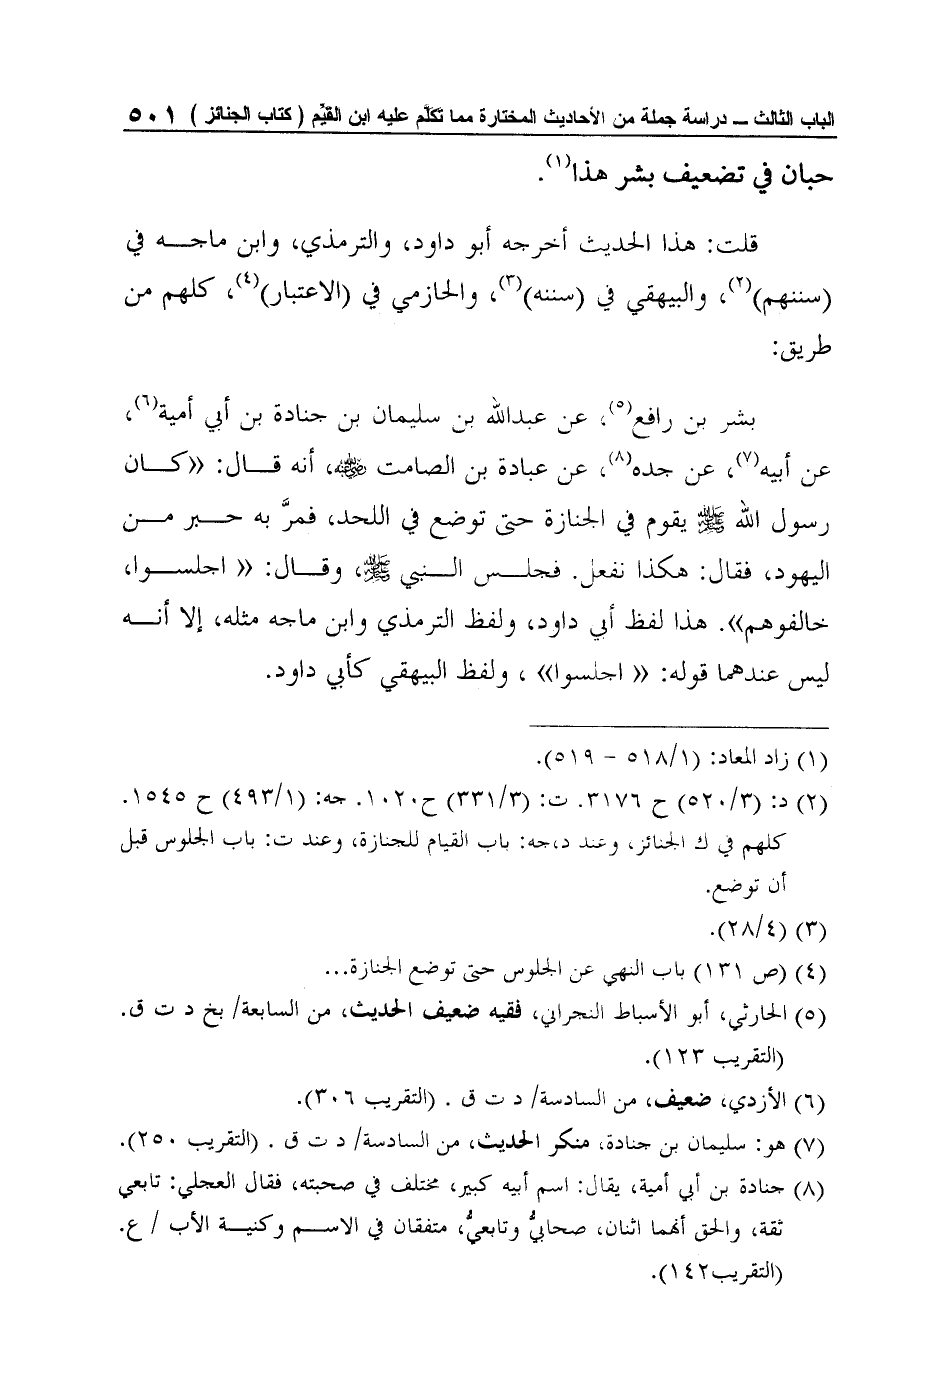 الباب الثالث ــ دراسة جملة من الأحاديث المختارة مما تكلَّم عليه ابن القيِّم ( كتاب الجنائز ) ٥٠١
حبان في تضعيف بشر هذا(١).
قلت: هذا الحديث أخرجه أبو داود، والترمذي، وابن ماجه في
(سننهم)(٢)، والبيهقي في (سننه)(٣)، والحازمي في (الاعتبار)(٤)، كلهم من
طريق:
بشر بن رافع(٥)، عن عبدالله بن سليمان بن جنادة بن أبي أمية(٦)،
عن أبيه(٧)، عن جده(٨)، عن عبادة بن الصامت رضي الله عنه، أنه قال: «كان
رسول الله ﷺ يقوم في الجنازة حتى توضع في اللحد، فمرَّ به حبر من
اليهود، فقال: هكذا نفعل. فجلس النبي ﷺ، وقال: « اجلسوا،
خالفوهم». هذا لفظ أبي داود، ولفظ الترمذي وابن ماجه مثله، إلا أنه
ليس عندهما قوله: « اجلسوا» ، ولفظ البيهقي كأبي داود.
(١) زاد المعاد: (٥١٨/١ – ٥١٩).
(٢) د: (٥٢٠/٣) ح ٣١٧٦. ت: (٣٣١/٣) ح١٠٢٠. جه: (٤٩٣/١) ح ١٥٤٥.
كلهم في ك الجنائز، وعند د،جه: باب القيام للجنازة، وعند ت: باب الجلوس قبل
أن توضع.
(٣) (٢٨/٤).
(٤) (ص ١٣١) باب النهي عن الجلوس حتى توضع الجنازة...
(٥) الحارثي، أبو الأسباط النجراني، فقيه ضعيف الحديث، من السابعة/ بخ د ت ق.
(التقريب ١٢٣).
(٦) الأزدي، ضعيف، من السادسة/ د ت ق . (التقريب ٣٠٦).
(٧) هو: سليمان بن جنادة، منكر الحديث، من السادسة/ د ت ق . (التقريب ٢٥٠).
(٨) جنادة بن أبي أمية، يقال: اسم أبيه كبير، مختلف في صحبته، فقال العجلي: تابعي
ثقة، والحق أنهما اثنان، صحابيٌّ وتابعيٌّ، متفقان في الاسم وكنية الأب / ع.
(التقريب١٤٢).